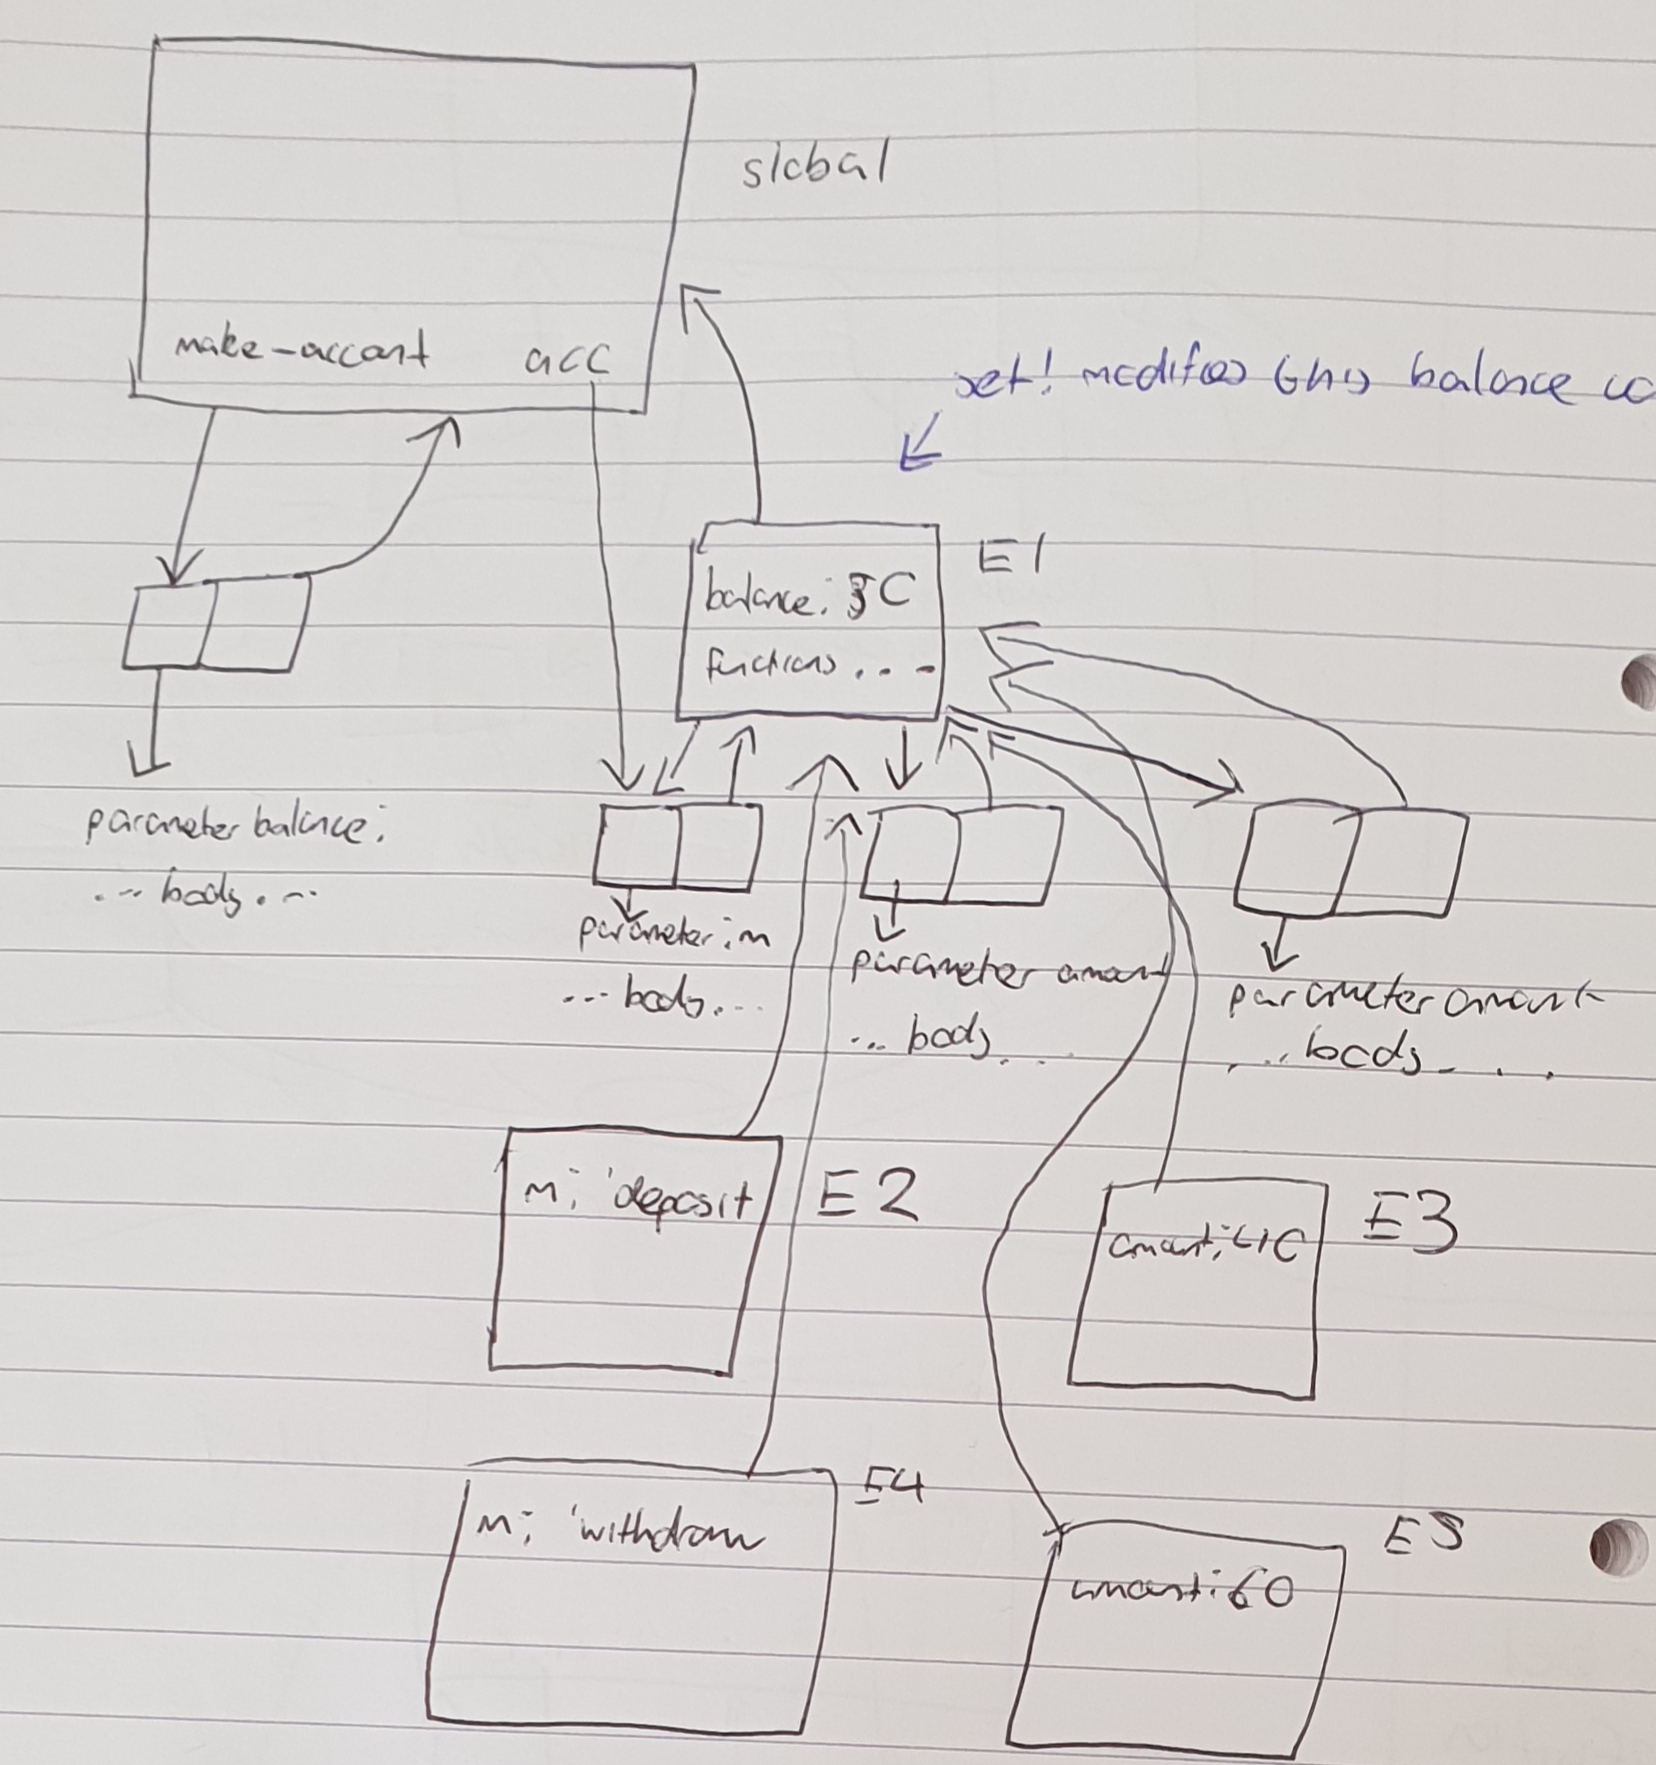 global
make-account acc
set! modifies this balance
E1
balance: 30
functions...-
parameter balance:
... body....
parameter: m
... body....
parameter amount
... body...
parameter amount
... body....
m: 'deposit
E2
amount: 40
E3
m: 'withdraw
E4
amount: 60
E5